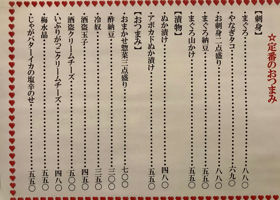 ☆定番のおつまみ
【刺身】
・まぐろ・・・・・・・・・・・・八八〇
・やなぎタコ・・・・・・・・・・六九〇
・お刺身二点盛り・・・・・・・・八八〇
・まぐろ納豆・・・・・・・・・・五五〇
・まぐろ山かけ・・・・・・・・・五五〇
【漬物】
・ぬか漬け・・・・・・・・・・・四八〇
・アボカドぬか漬け・・・・・・・五五〇
【おつまみ】
・おまかせ惣菜三点盛り・・・・・七〇〇
・酢納豆・・・・・・・・・・・・
・冷奴・・・・・・・・・・・・・
・酒盗玉子・・・・・・・・・・・四五〇
・酒盗クリームチーズ・・・・・・五〇〇
・いぶりがっこクリームチーズ・・四八〇
・梅水晶・・・・・・・・・・・・五五〇
・じゃがバターイカの塩辛のせ・・五五〇